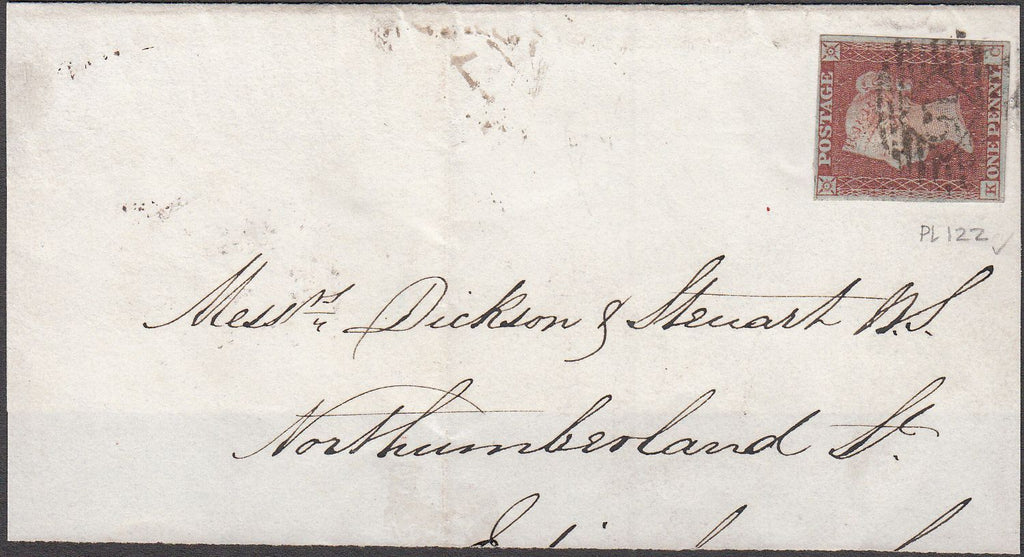 POSTAGE
ONE PENNY
K C
PL 122
Messrs Dickson & Steuart W.S.
Northumberland St.